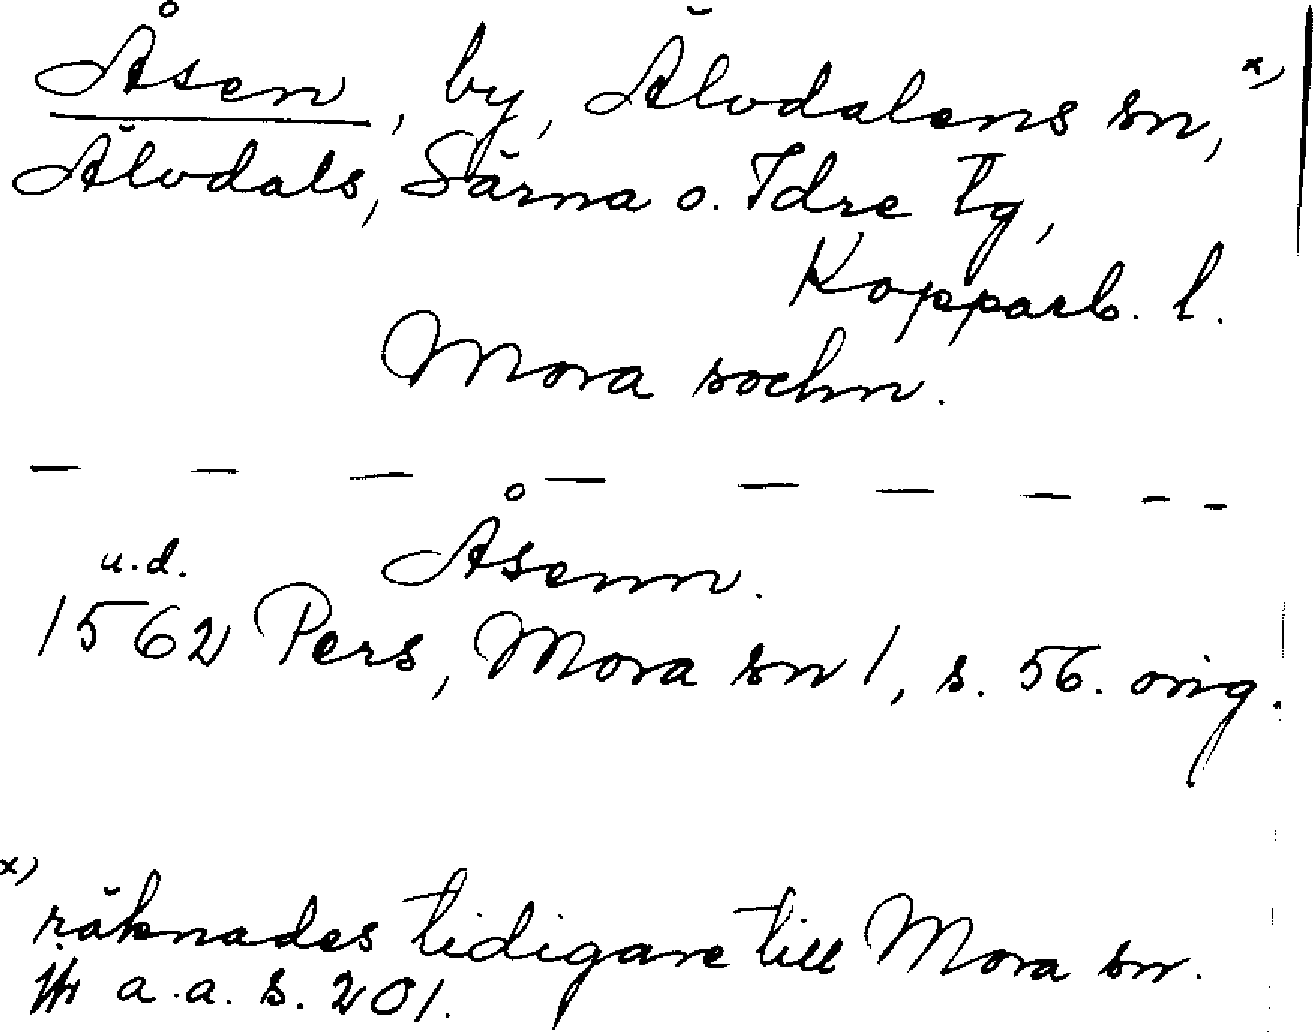 Åsen, by, Älvdalens sn, x)
Älvdals, Särna o. Idre tg,
Kopparb. l.
Mora sochn.
Åsenn.
u.d.
1562 Pers, Mora sn 1, s. 56. orig.
x)
räknades tidigare till Mora sn.
jfr a.a. s. 201.